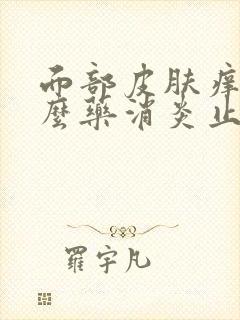 而部皮肤痒
麼藥消炎止
羅宇凡